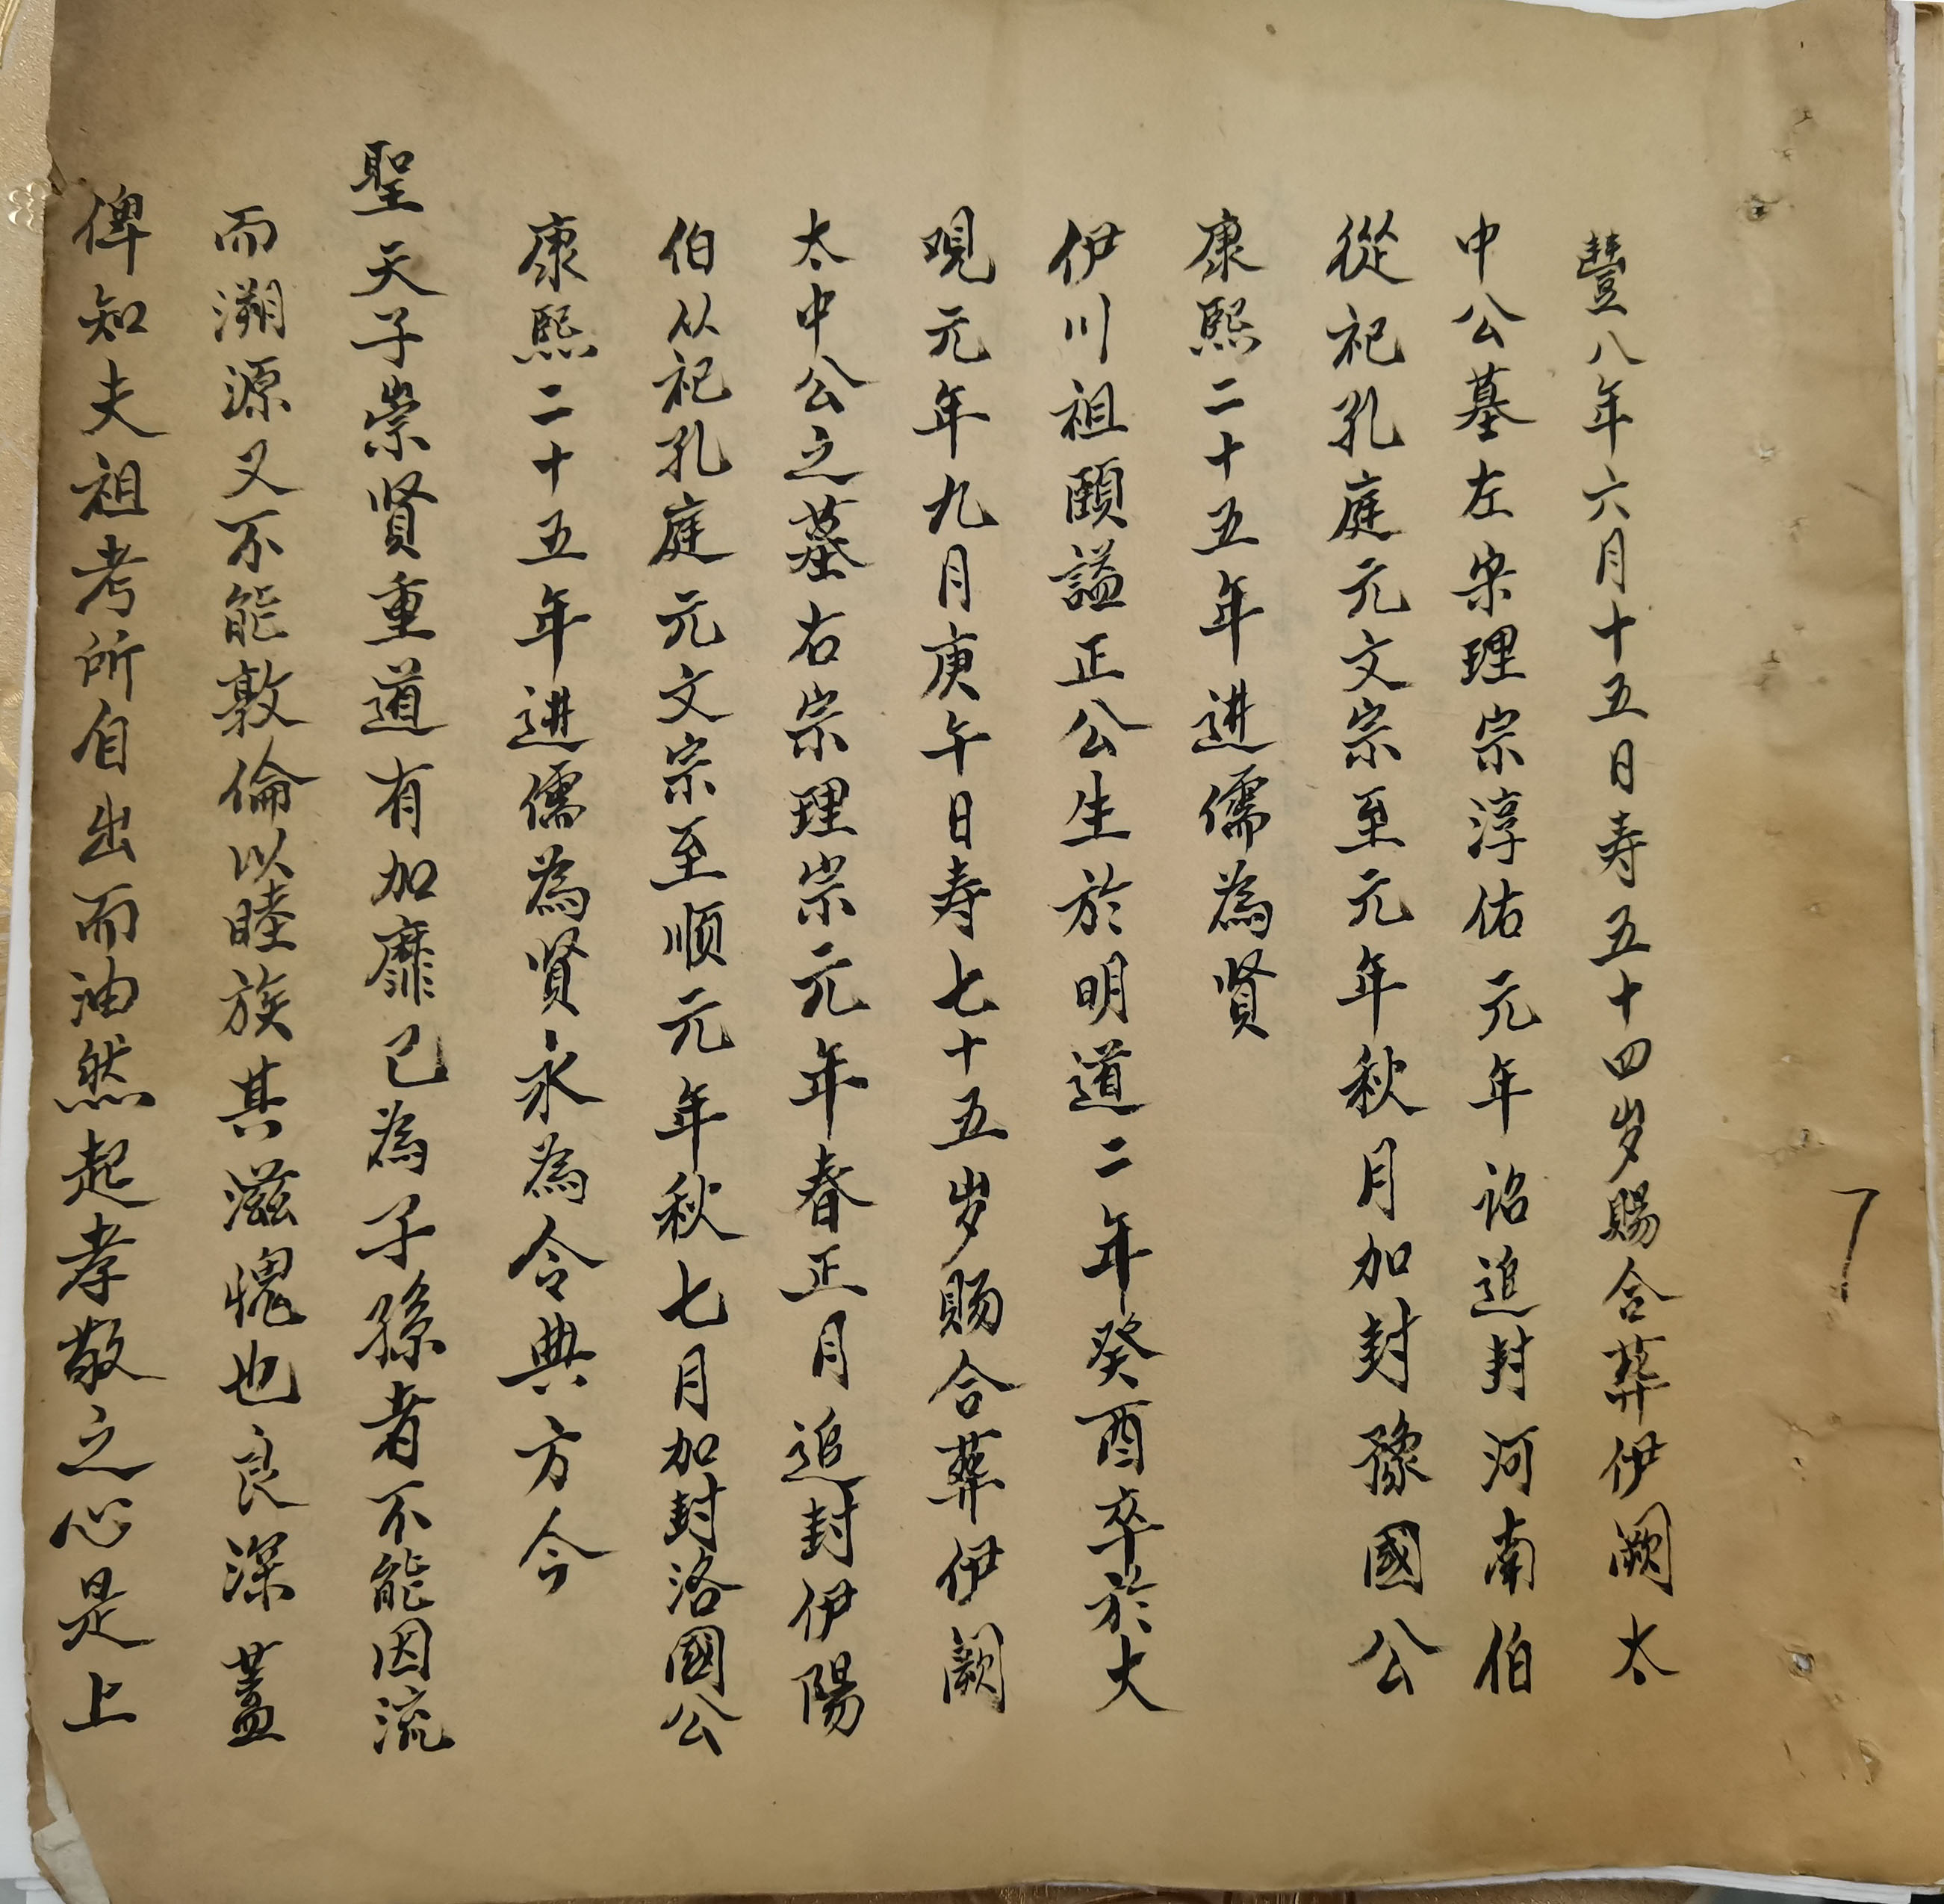 豐八年六月十五日寿五十四岁賜合葬伊阙太
中公墓左宋理宗淳佑元年诏追封河南伯
從祀孔庭元文宗至元年秋月加封豫國公
康熙二十五年进儒為贤
伊川祖頤謚正公生於明道二年癸酉卒於大
观元年九月庚午日寿七十五岁赐合葬伊阙
太中公之墓右宗理宗元年春正月追封伊陽
伯从祀孔庭元文宗至顺元年秋七月加封洛國公
康熙二十五年进儒為贤永為令典方今
聖天子崇贤重道有加靡已為子孫者不能因流
而溯源又不能敦倫以睦族其滋愧也良深蓋
俾知夫祖考所自出而油然起孝敬之心是上
7